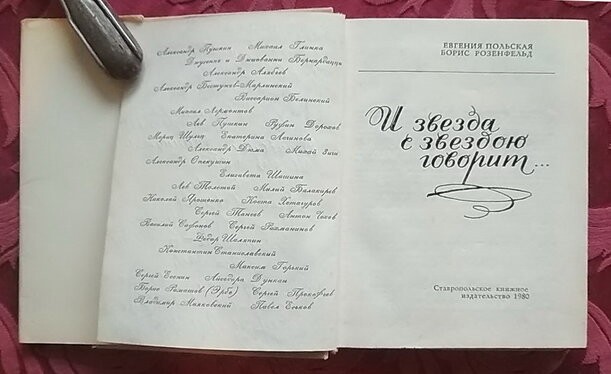 Александр Пушкин Михаил Глинка
Джузеппе и Джиованни Бернардацци
Александр Алябьев
Александр Бестужев-Марлинский
Виссарион Белинский
Михаил Лермонтов
Лев Пушкин Руфин Дорохов
Мориц Шульц Екатерина Лачинова
Александр Дюма Михай Зичи
Александр Опекушин
Елизавета Шашина
Лев Толстой Милий Балакирев
Николай Ярошенко Коста Хетагуров
Сергей Танеев Антон Чехов
Василий Сафонов Сергей Рахманинов
Федор Шаляпин
Константин Станиславский
Максим Горький
Сергей Есенин Айседора Дункан
Борис Розанов (Эрбе) Сергей Прокофьев
Владимир Маяковский Павел Еськов
ЕВГЕНИЯ ПОЛЬСКАЯ
БОРИС РОЗЕНФЕЛЬД
И звезда
с звездою
говорит...
Ставропольское книжное
издательство 1980